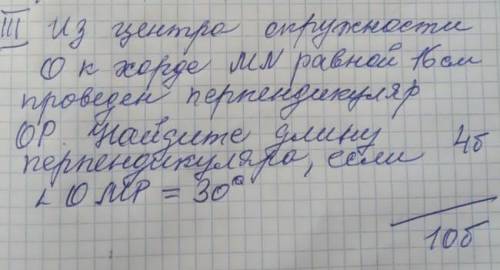 III Из центра окружности
О к хорде MN равной 16 см
проведен перпендикуляр
ОР. Найдите длину
перпендикуляра, если 4б
∠ OMP = 30°
10б